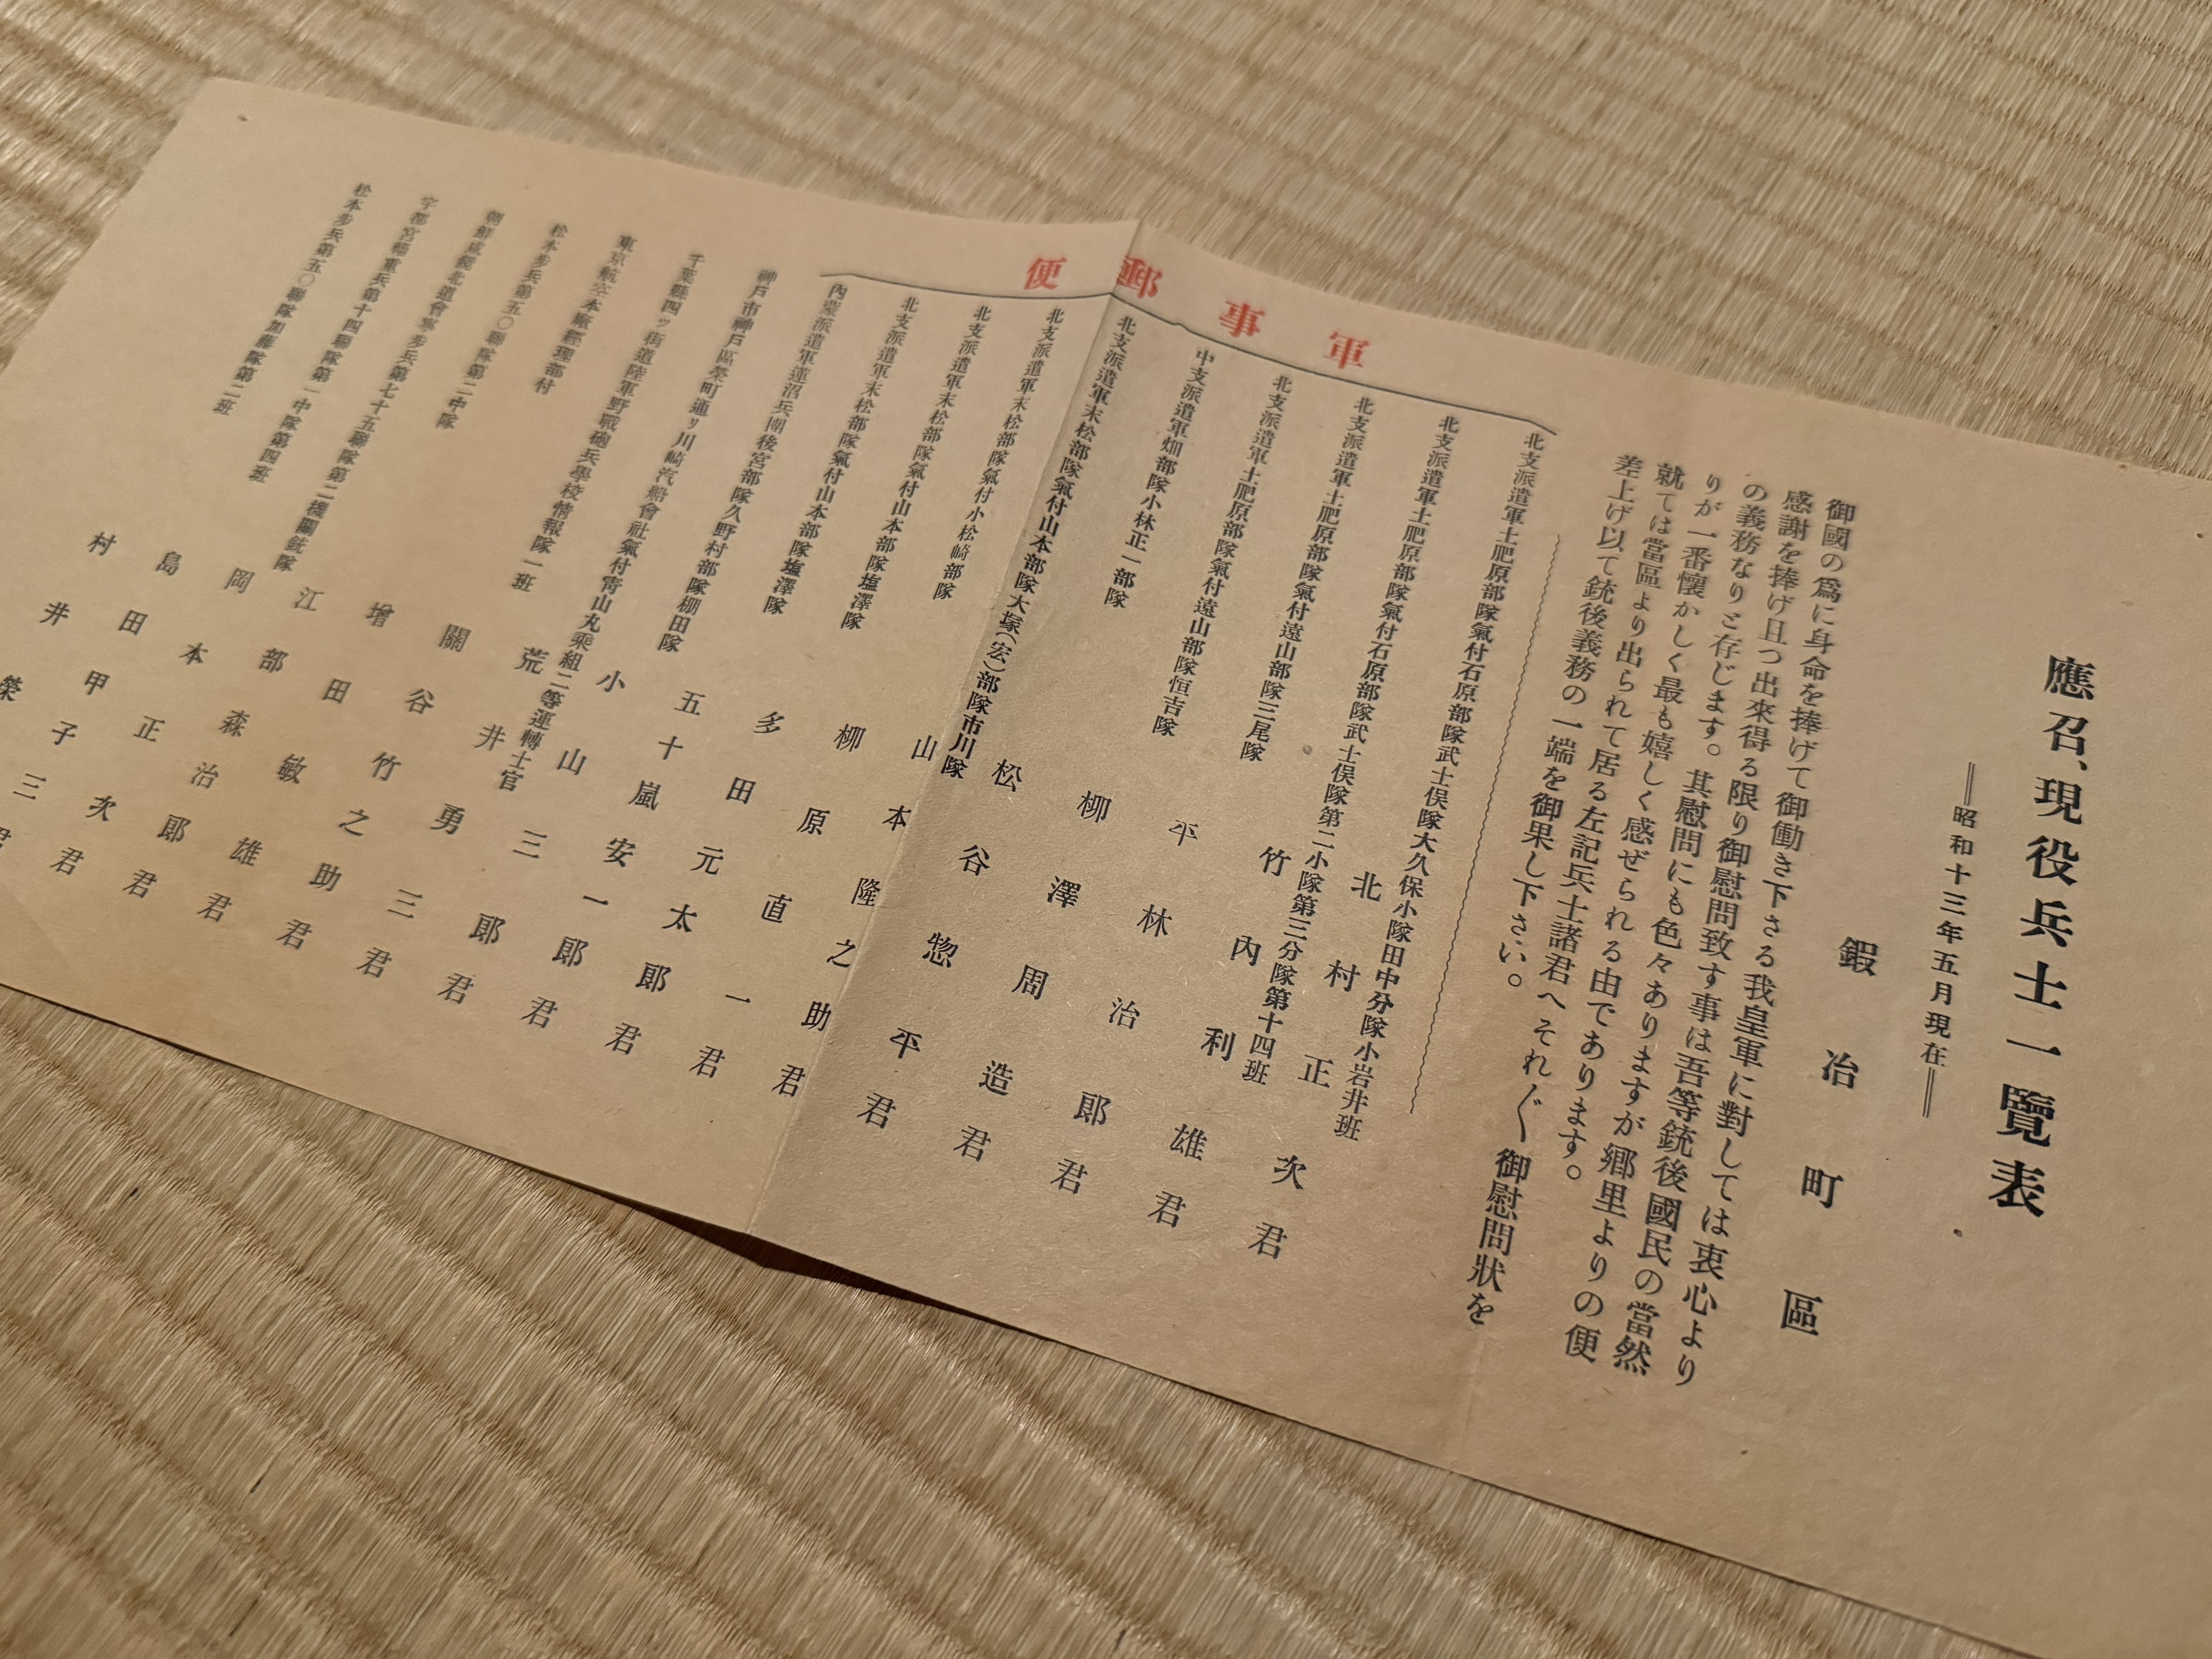 應召、現役兵士一覽表
昭和十三年五月現在
鍜冶町區
御國の爲に身命を捧げて御働き下さる我皇軍に對しては衷心より
感謝を捧げ且つ出來得る限り御慰問致す事は吾等銃後國民の當然
の義務なりと存じます。其慰問にも色々ありますが郷里よりの便
りが一番懷かしく最も嬉しく感ぜられる由であります。
就ては當區より出られて居る左記兵士諸君へそれ〲御慰問狀を
差上げ以て銃後義務の一端を御果し下さい。
軍事郵便
北支派遣軍土肥原部隊氣付石原部隊武士俣隊大久保小隊田中分隊小岩井班 北村正次君
北支派遣軍土肥原部隊氣付石原部隊武士俣隊第二小隊第三分隊第十四班 竹內利雄君
北支派遣軍土肥原部隊氣付遠山部隊三尾隊 平林治郎君
北支派遣軍土肥原部隊氣付遠山部隊恒吉隊 柳澤周造君
中支派遣軍畑部隊小林正一部隊 松谷惣平君
北支派遣軍末松部隊氣付山本部隊大塚(宏)部隊市川隊 山本隆之助君
北支派遣軍末松部隊氣付小松崎部隊 柳原直一君
北支派遣軍末松部隊氣付山本部隊塩澤隊 多田元太郎君
北支派遣軍末松部隊氣付山本部隊塩澤隊 五十嵐安一郎君
內蒙派遣軍蓮沼兵團後宮部隊久野村部隊棚田隊 小山三郎君
神戶市神戶區榮町通リ川崎汽船會社氣付靑山丸乘組二等運轉士官 荒井勇三君
千葉縣四ツ街道陸軍野戰砲兵學校情報隊一班 關谷竹之助君
東京航空本廠經理部付 增田敏雄君
松本步兵第五〇聯隊第二中隊 江部森治郎君
朝鮮咸鏡北道會寧步兵第七十五聯隊第二機關銃隊 岡本正次君
宇都宮輜重兵第十四聯隊第一中隊第四班 島田甲子三君
松本步兵第五〇聯隊加藤隊第二班 村井榮